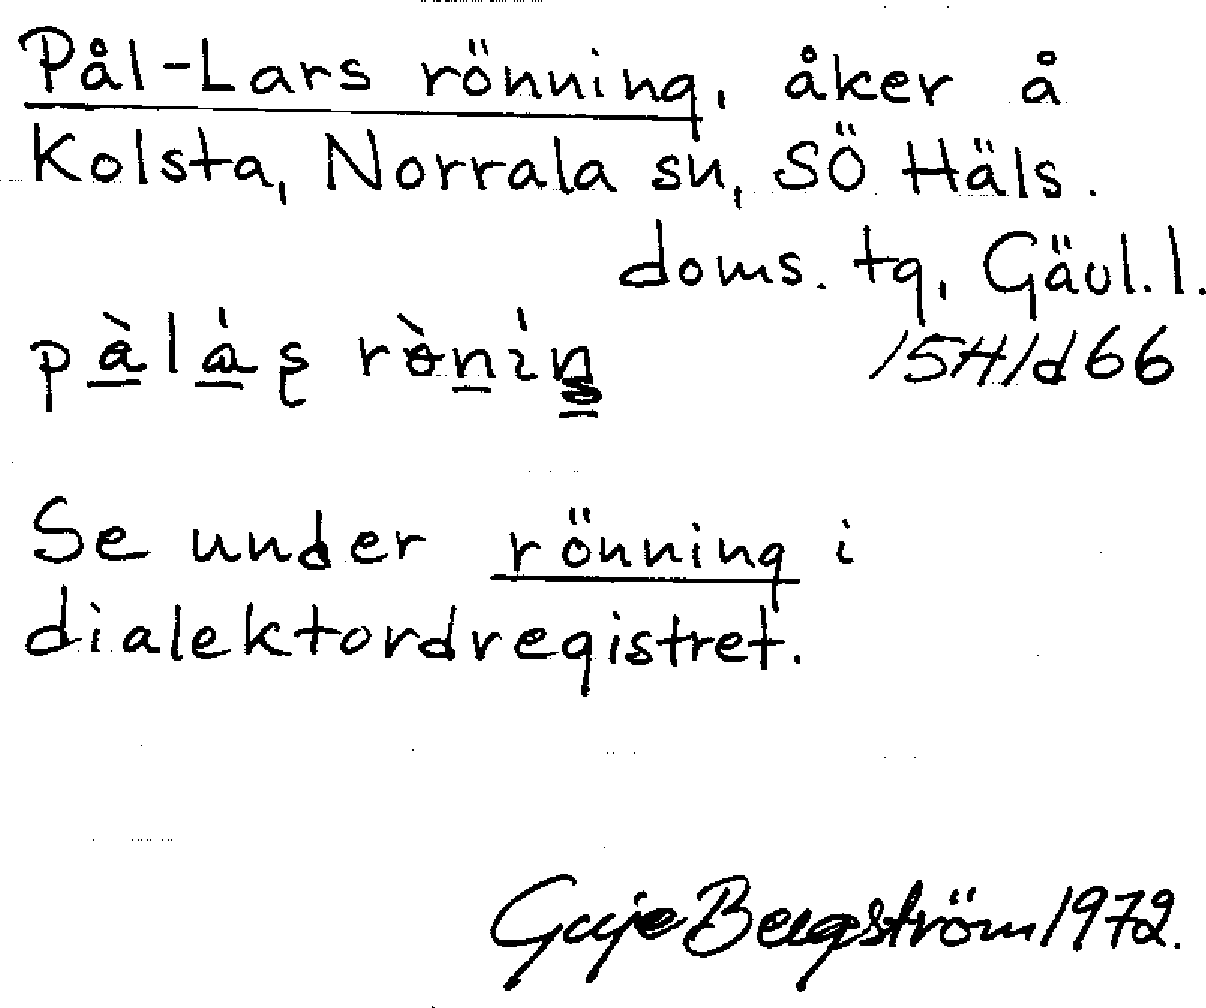 Pål-Lars rönning, åker å
Kolsta, Norrala sn, SÖ Häls.
doms. tg, Gävl. l.
pàlás rònin
15H1d66
Se under rönning i
dialektordregistret.
Bergström 1972.